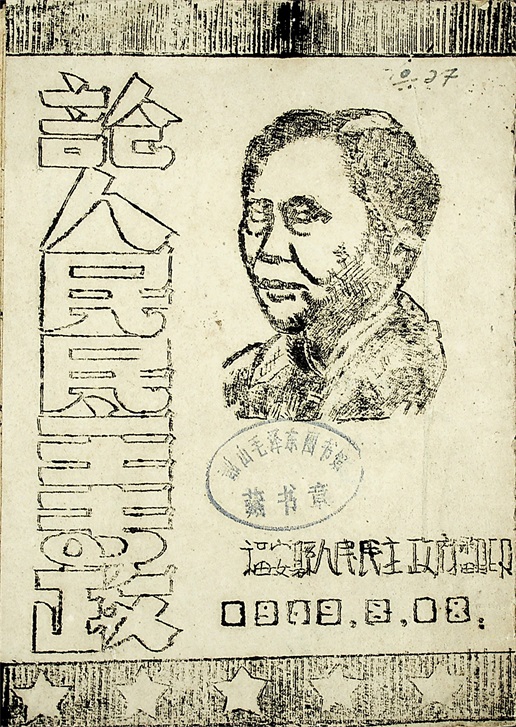 論人民民主專政
韶山毛泽东图书馆
藏书章
福安縣人民民主政府翻印